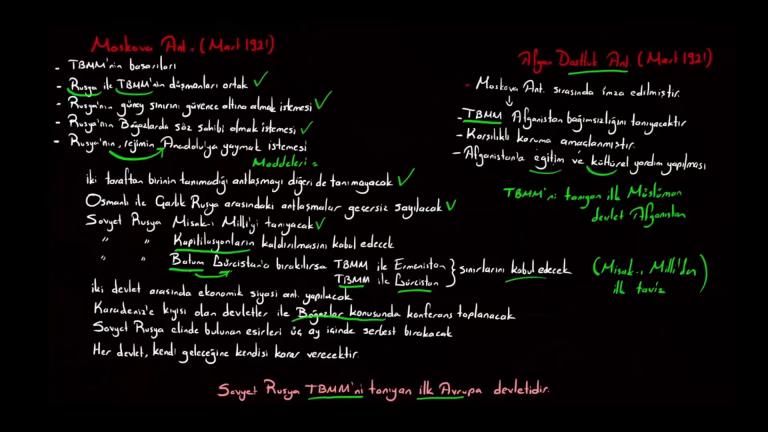 Moskova Ant. (Mart 1921)
- TBMM'nin başarıları
- Rusya ile TBMM'nin düşmanları ortak
- Rusya'nın güney sınırını güvence altına almak istemesi
- Rusya'nın Boğazlarda söz sahibi olmak istemesi
- Rusya'nın, rejimin Anadolu'ya yaymak istemesi
Maddeleri :
iki taraftan birinin tanımadığı antlaşmayı diğeri de tanımayacak
Osmanlı ile Çarlık Rusya arasındaki antlaşmalar geçersiz sayılacak
Sovyet Rusya Misak-ı Milli'yi tanıyacak
" " Kapitilasyonların kaldırılmasını kabul edecek
" " Batum Gürcistan'a bırakılırsa TBMM ile Ermenistan
TBMM ile Gürcistan } sınırlarını kabul edecek
(Misak-ı Milli'den
ilk taviz)
iki devlet arasında ekonomik siyasi ant. yapılacak
Karadeniz'e kıyısı olan devletler ile Boğazlar konusunda konferans toplanacak
Sovyet Rusya elinde bulunan esirleri üç ay içinde serbest bırakacak
Her devlet, kendi geleceğine kendisi karar verecektir.
Afgan Dostluk Ant (Mart 1921)
- Moskova Ant. sırasında imza edilmiştir.
- TBMM Afganistan bağımsızlığını tanıyacaktır
- Karşılıklı koruma amaçlanmıştır.
- Afganistan'a eğitim ve kültürel yardım yapılması
TBMM'ni tanıyan ilk Müslüman
devlet Afganistan
Sovyet Rusya TBMM'ni tanıyan ilk Avrupa devletidir.